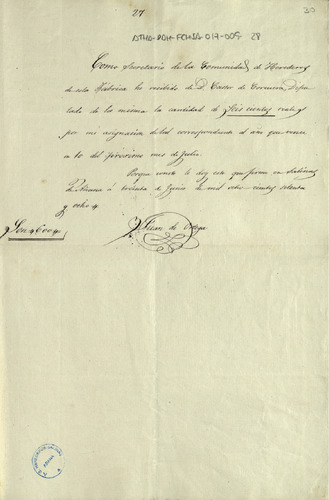 27
30
ATHA-DAH-FCHSA-017-009-28
Como Secretario de la Comunidad de Herederos
de esta Fabrica he recibido de D. Castor de
de la misma la cantidad de Seis cientos reales
por mi asignacion correspondiente al año que vence
a 10 del proximo mes de Julio.
Porque conste le doy este que firmo en Salinas
de Añana á treinta de Junio de mil ocho cientos setenta
y ocho
Son 600
Julian de Ortega